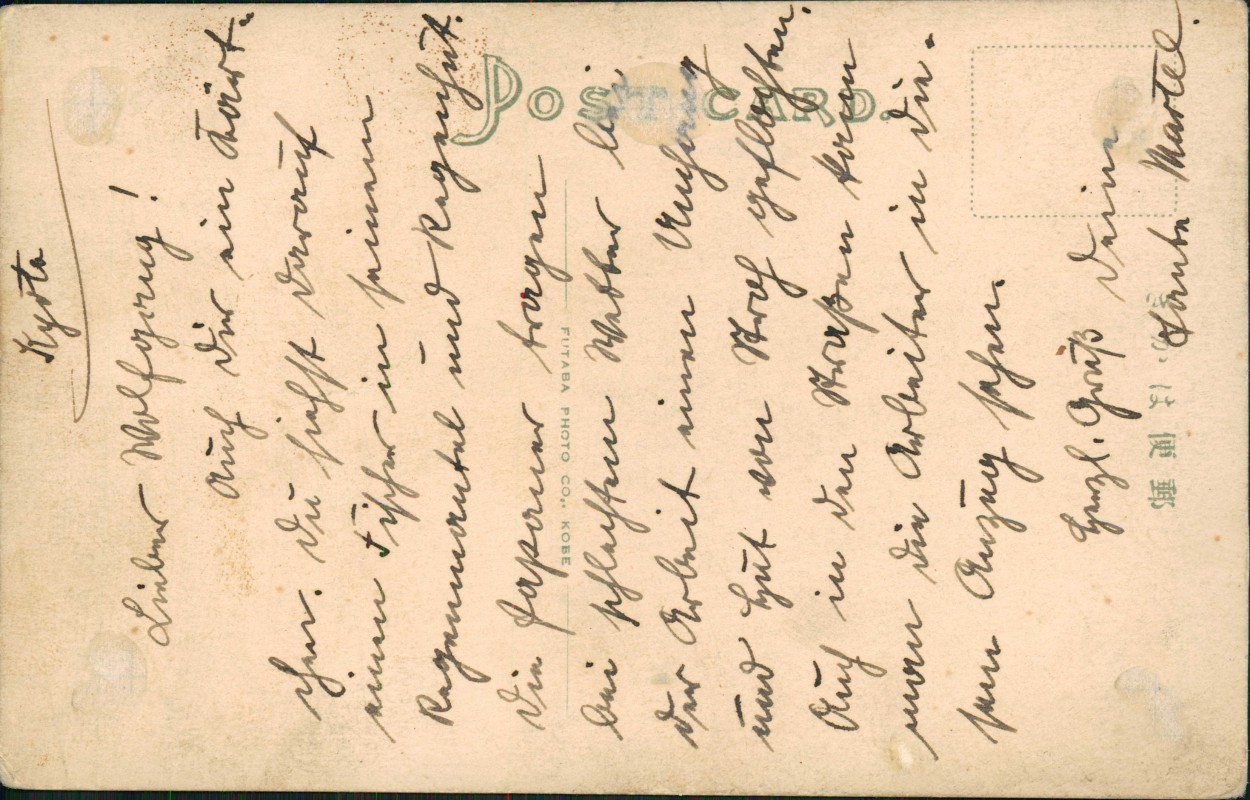 Kyoto
Lieber Wolfgang!
Auch Dir ein Kärt-
chen. Du siehst darauf
einen Fischer in seinem
Regenmantel und Regenhut.
Die Japaner tragen
bei schlechtem Wetter bei
der Arbeit einen Umhang
und Hut von Stroh geflochten.
Auch in den Straßen kann
man die Arbeiter in die-
sem Anzug sehen.
Herzl. Gruß Deine
Tante Martel.
POST CARD.
FUTABA PHOTO CO., KOBE
郵便はがき